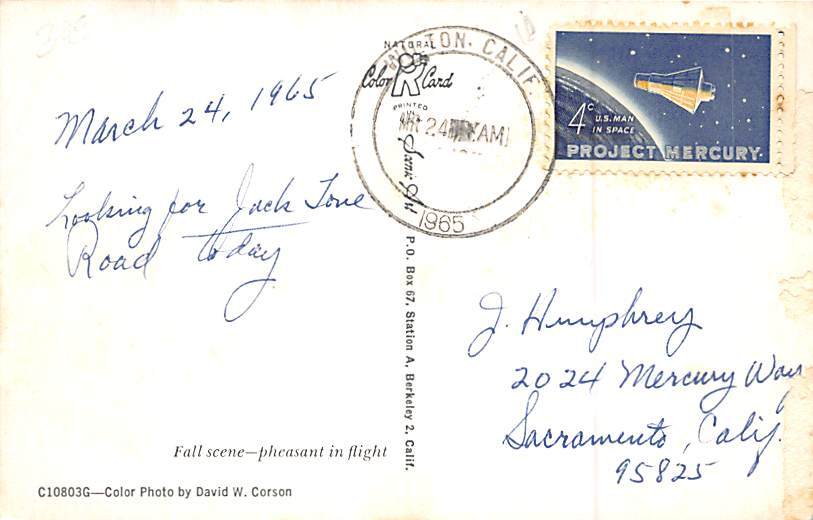 March 24, 1965
Looking for Jack Tone
Road today
Fall scene—pheasant in flight
C10803G—Color Photo by David W. Corson
NATURAL
Color R Card
PRINTED
Scenic Art
P.O. Box 67, Station A, Berkeley 2, Calif.
TON, CALIF.
24 AM
1965
4c U.S. MAN
IN SPACE
PROJECT MERCURY
J. Humphrey
2024 Mercury Way
Sacramento, Calif.
95825